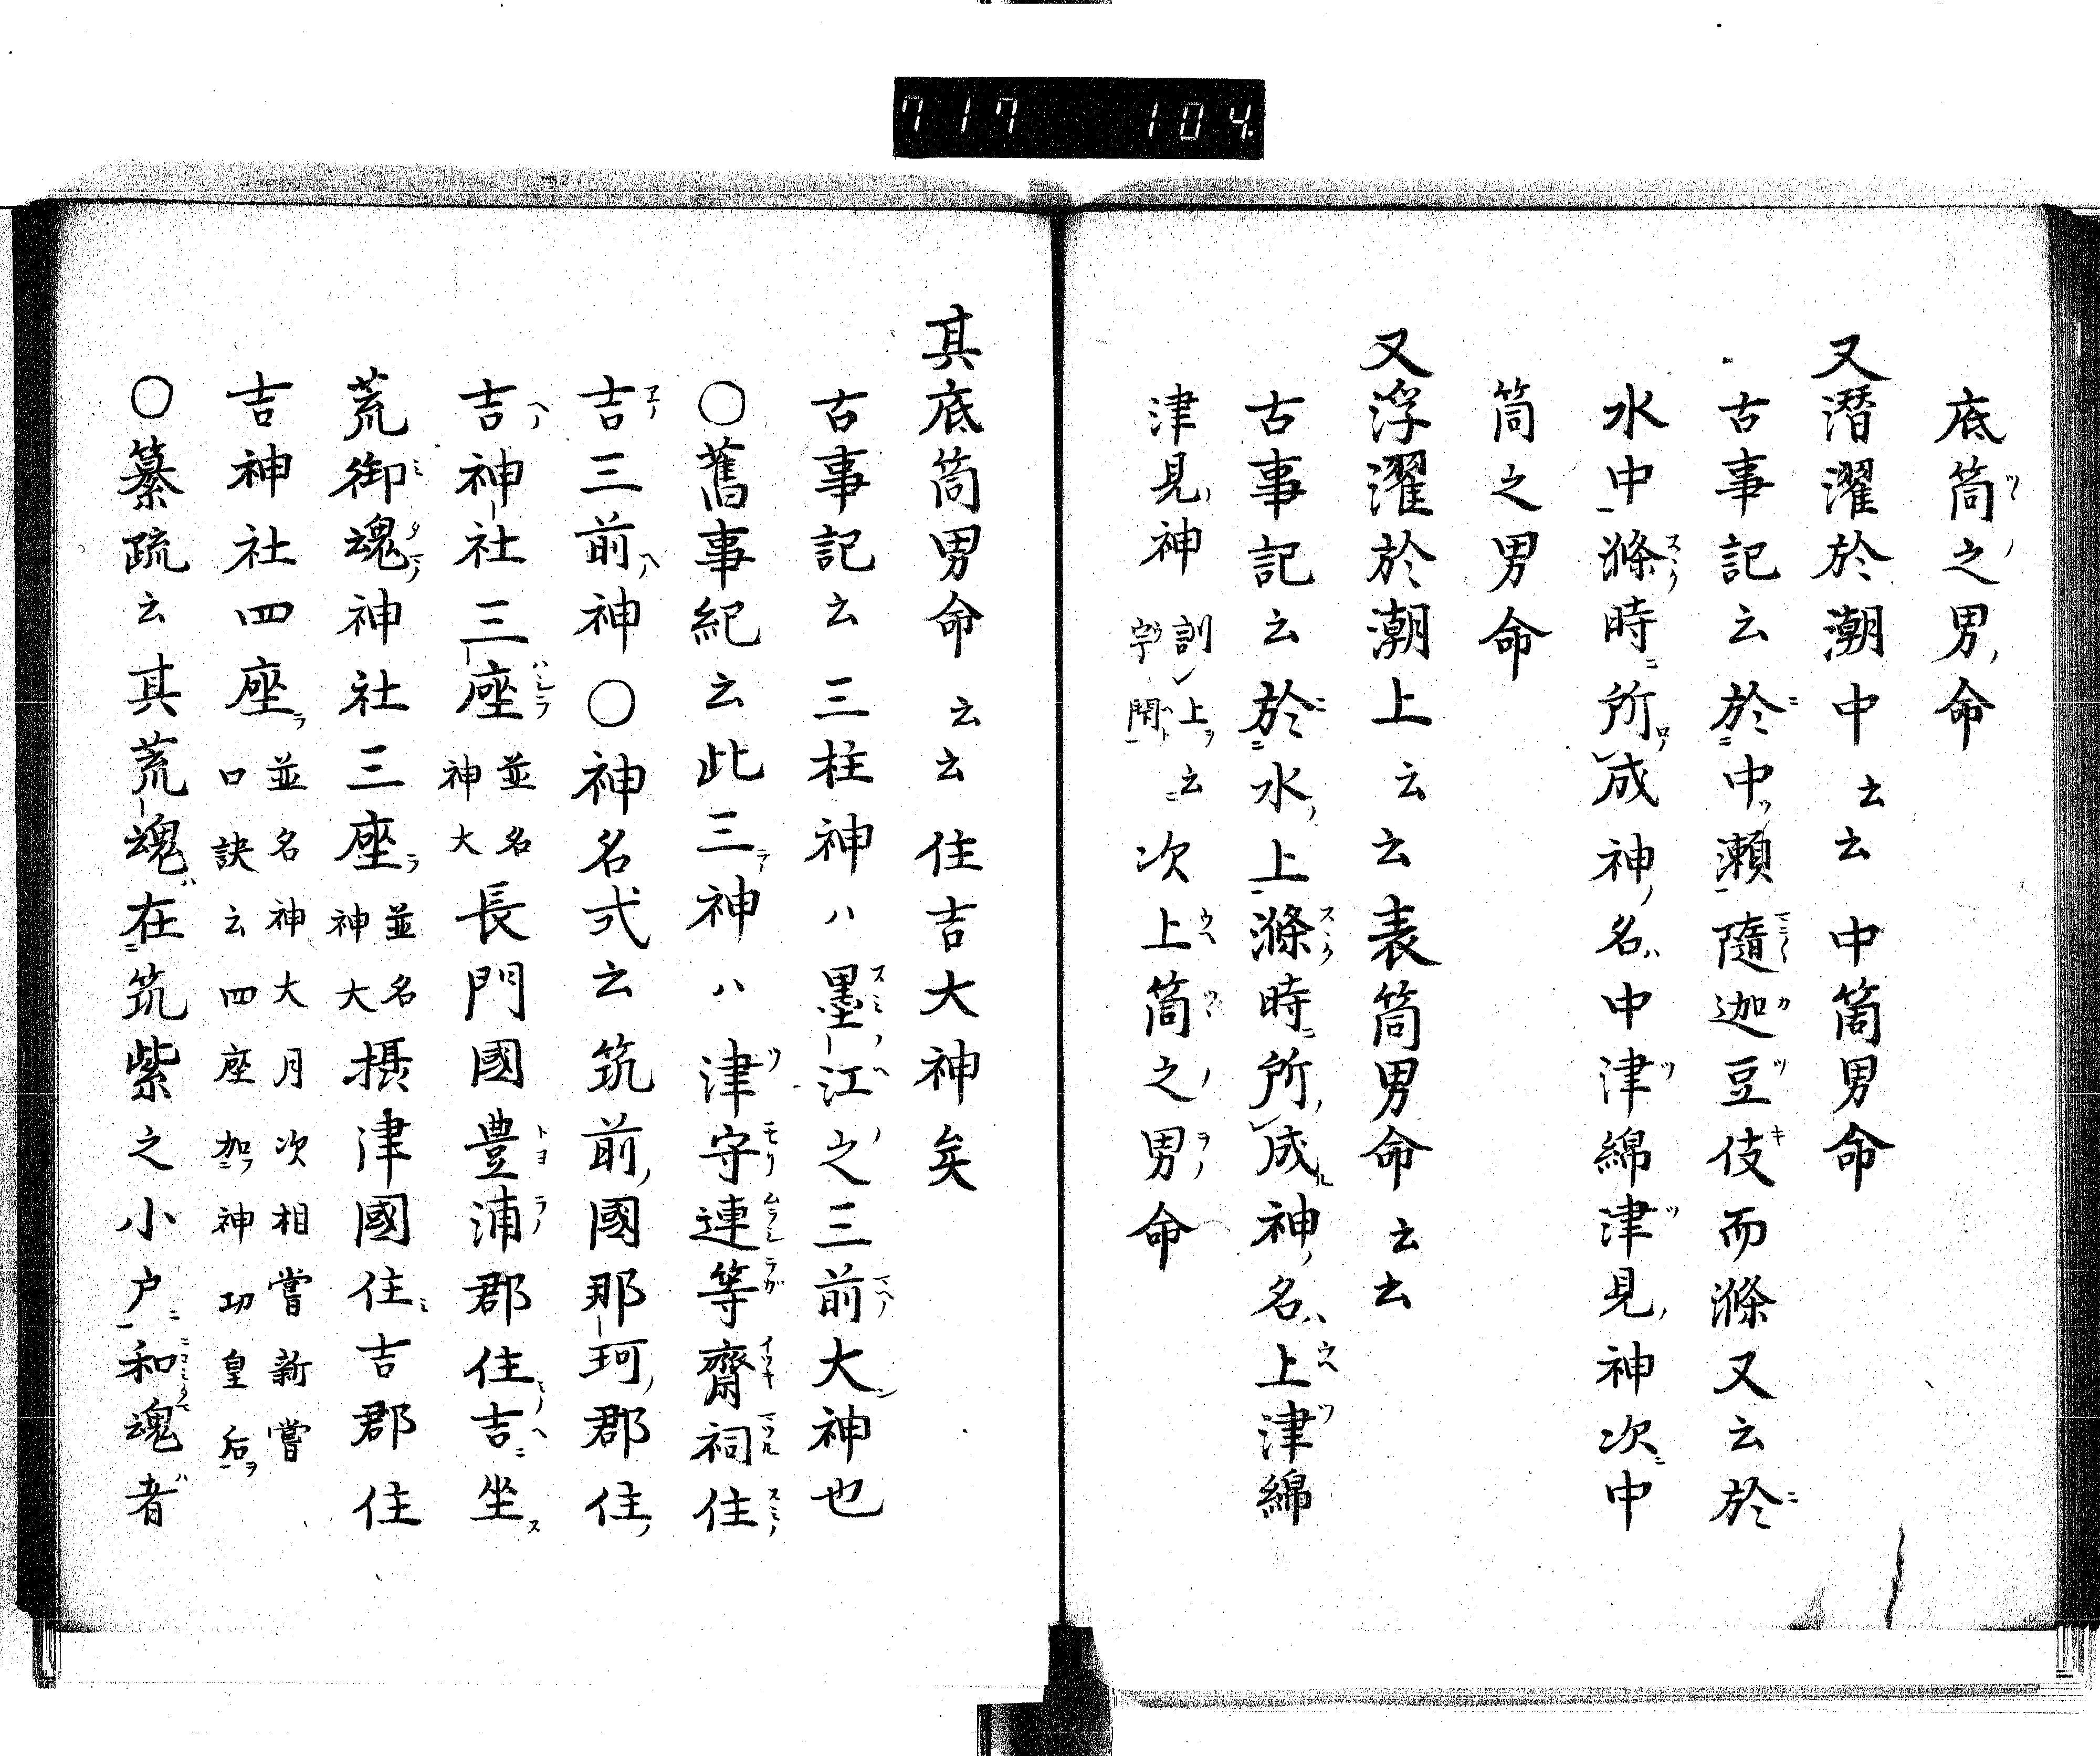 717 104
底筒之男命
又潛濯於潮中云云 中筒男命
古事記云於中瀬隨迦豆伎而滌又云於
水中滌時所成神名中津綿津見神次中
筒之男命
又浮濯於潮上云云表筒男命云云
古事記云於水上滌時所成神名上津綿
津見神訓上字閇云次上筒之男命
其底筒男命云云 住吉大神矣
古事記云三柱神ハ墨江之三前大神也
〇舊事紀云此三神ハ津守連等齋祠住
吉三前神〇神名式云筑前國那珂郡住
吉神社三座並名神大長門國豊浦郡住吉坐
荒御魂神社三座並名神大攝津國住吉郡住
吉神社四座並名神大月次相嘗新嘗口訣云四座加神功皇后
〇纂疏云其荒魂在筑紫之小戸和魂者